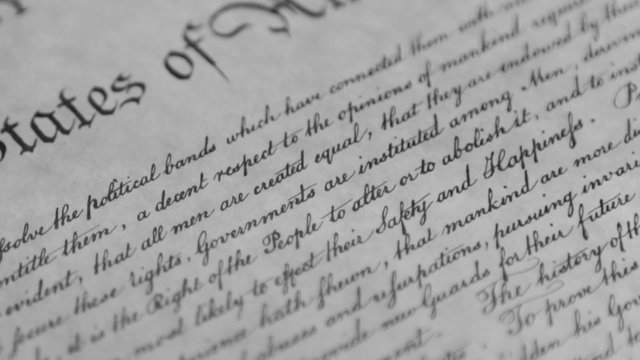 States of
ssolve the political bands which have connected them with
entitle them, a decent respect to the opinions of mankind requir
evident, that all men are created equal, that they are endowed by their
secure these rights, Governments are instituted among Men, deriving
it is the Right of the People to alter or to abolish it, and to inst
most likely to effect their Safety and Happiness. P
hath shewn, that mankind are more di
abuses and usurpations, pursuing invari
provide new Guards for their future
The history of th
To prove this